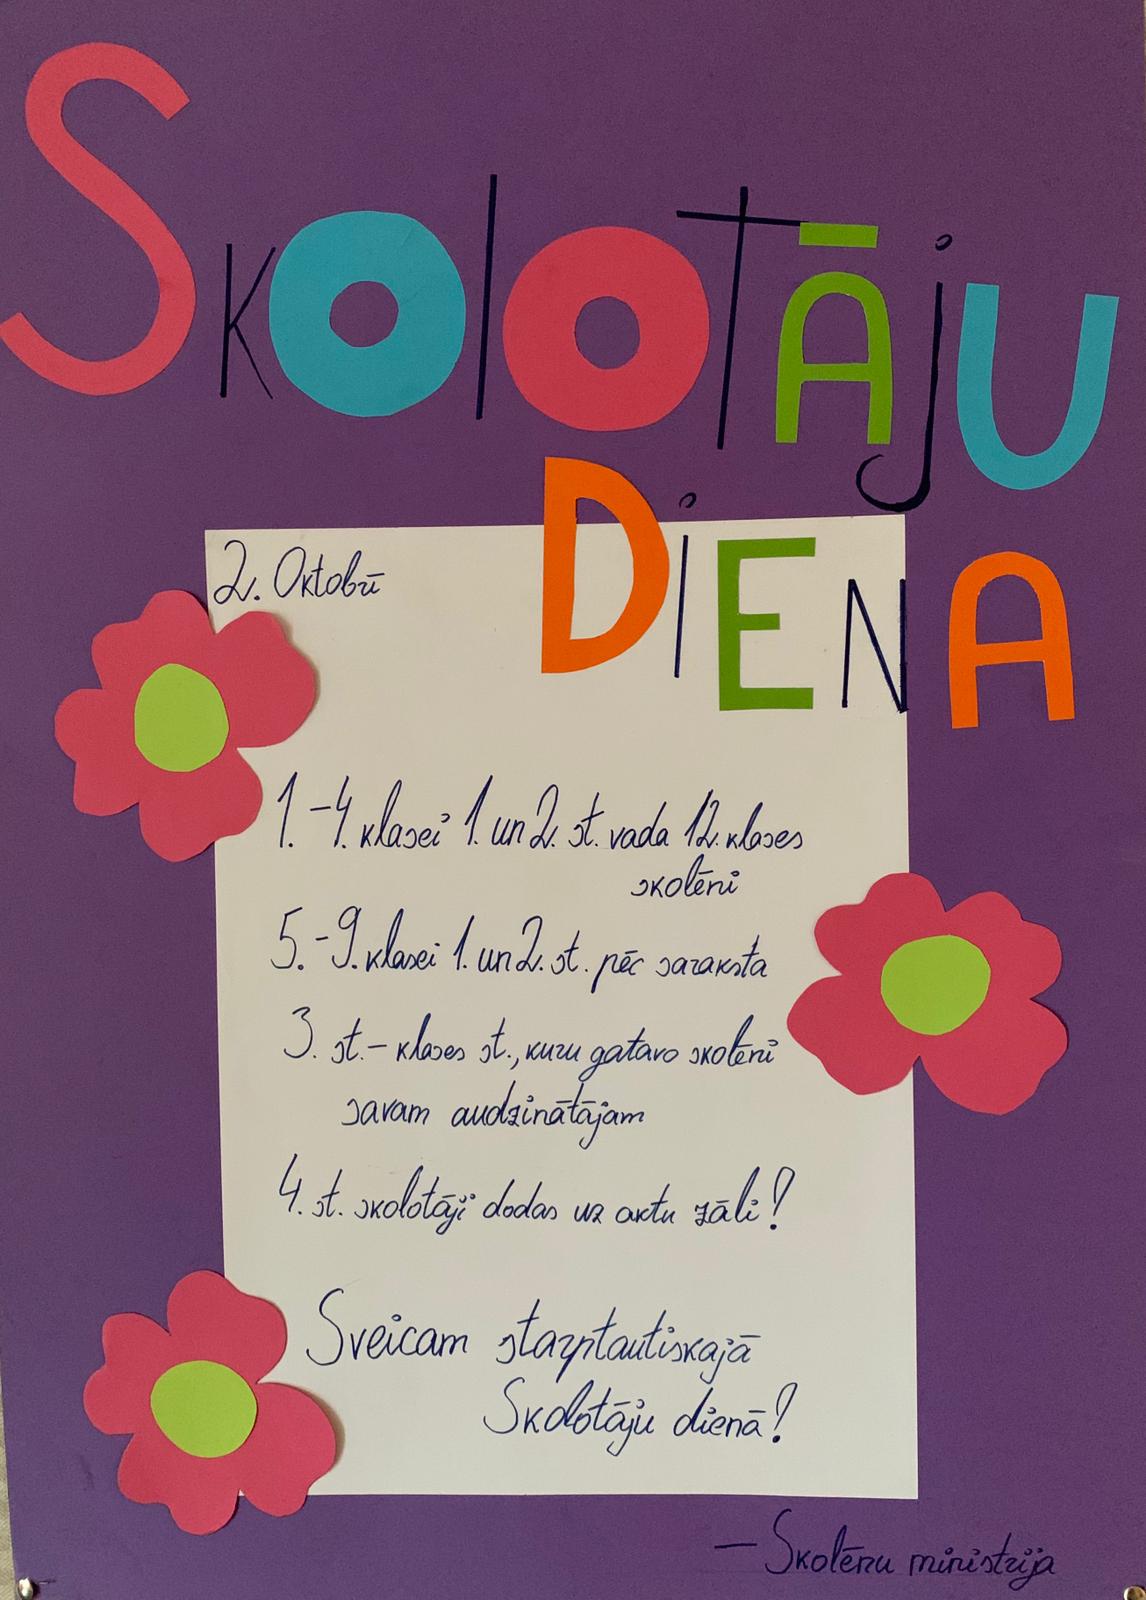 Skolotāju
Diena
2. Oktobrī
1.-4. klasei 1. un 2. st. vada 12. klases
skolēni
5.-9. klasei 1. un 2. st. pēc saraksta
3. st. - klases st., kuru gatavo skolēni
savam audzinātājam
4. st. skolotāji dodas uz aktu zāli!
Sveicam starptautiskajā
Skolotāju dienā!
- Skolēnu ministrija